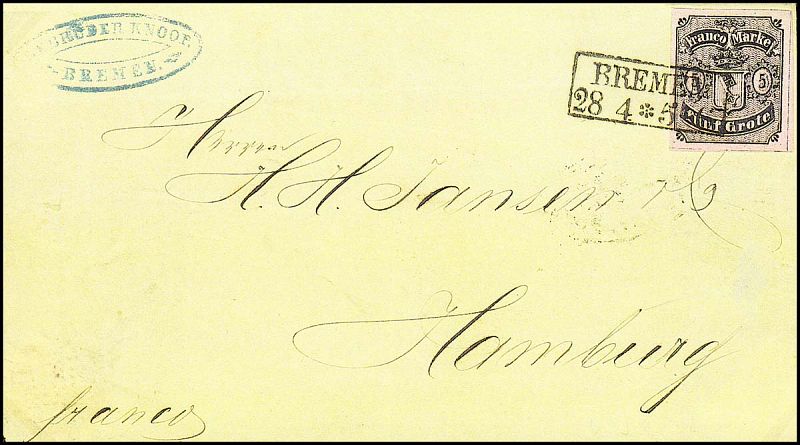 GEBRÜDER KNOOP.
BREMEN.
Franco Marke
5
Fünf Grote
BREMEN
28 4 * 5
Herren
H. H. Jansen & C
Hamburg
franco